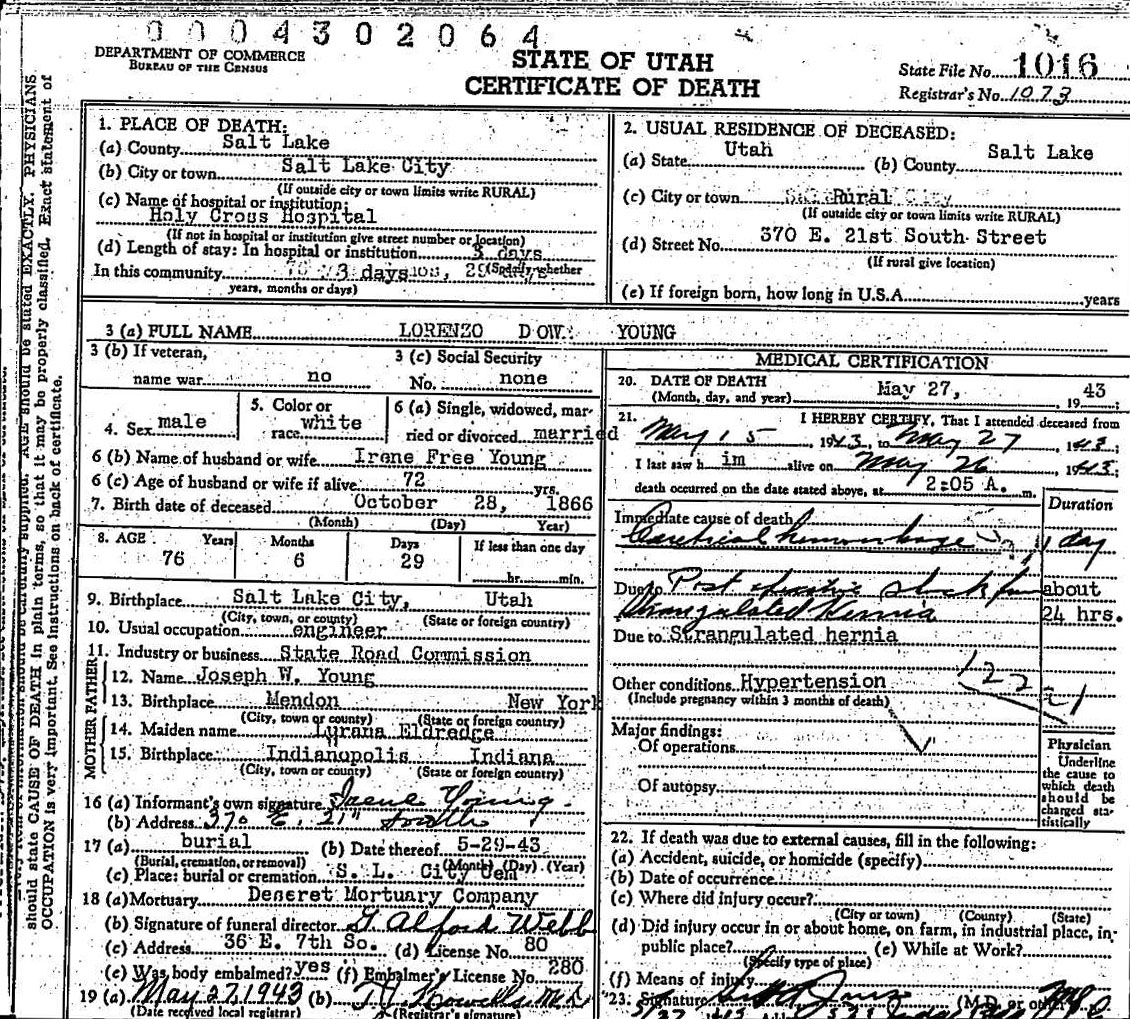 0 0 0 4 3 0 2 0 6 4
DEPARTMENT OF COMMERCE
BUREAU OF THE CENSUS
STATE OF UTAH
CERTIFICATE OF DEATH
State File No. 1016
Registrar's No. 1073
1. PLACE OF DEATH:
(a) County Salt Lake
(b) City or town Salt Lake City
(If outside city or town limits write RURAL)
(c) Name of hospital or institution:
Holy Cross Hospital
(If not in hospital or institution give street number or location)
(d) Length of stay: In hospital or institution 3 days
In this community 3 days (Specify whether
years, months or days)
2. USUAL RESIDENCE OF DECEASED:
(a) State Utah (b) County Salt Lake
(c) City or town Rural
(If outside city or town limits write RURAL)
(d) Street No. 370 E. 21st South Street
(If rural give location)
(e) If foreign born, how long in U.S.A. years
3 (a) FULL NAME LORENZO DOW YOUNG
3 (b) If veteran,
name war no
3 (c) Social Security
No. none
4. Sex male
5. Color or
race white
6 (a) Single, widowed, mar-
ried or divorced married
6 (b) Name of husband or wife Irene Free Young
6 (c) Age of husband or wife if alive 72 yrs.
7. Birth date of deceased October 28, 1866
(Month) (Day) Year)
8. AGE Years Months Days If less than one day
76 6 29 hr. min.
9. Birthplace Salt Lake City, Utah
(City, town, or county) (State or foreign country)
10. Usual occupation engineer
11. Industry or business State Road Commission
FATHER
12. Name Joseph W. Young
13. Birthplace Mendon New York
(City, town or county) (State or foreign country)
MOTHER
14. Maiden name Lurana Eldredge
15. Birthplace Indianopolis Indiana
(City, town or county) (State or foreign country)
16 (a) Informant's own signature Irene Young
(b) Address 370 E. 21" South
17 (a) burial (b) Date thereof 5-29-43
(Burial, cremation, or removal) (Month) (Day) (Year)
(c) Place: burial or cremation S. L. City Cem
18 (a) Mortuary Deseret Mortuary Company
(b) Signature of funeral director G. Alford Webb
(c) Address 36 E. 7th So. (d) License No. 80
(e) Was body embalmed? yes (f) Embalmer's License No. 280
19 (a) May 27, 1943 (b) T.J. Howells M.D.
(Date received local registrar) (Registrar's signature)
MEDICAL CERTIFICATION
20. DATE OF DEATH
(Month, day, and year) May 27, 19 43;
21. I HEREBY CERTIFY, That I attended deceased from
May 15, 1943, to May 27, 1943;
I last saw h im alive on May 26, 1943;
death occurred on the date stated above, at 2:05 A. m.
Duration
Immediate cause of death
hemorrhage 1 day
Due to Post shock from about
Strangulated Hernia 24 hrs.
Due to Strangulated hernia
Other conditions Hypertension
(Include pregnancy within 3 months of death)
122
Major findings:
Of operations
Of autopsy
Physician
Underline
the cause to
which death
should be
charged sta-
tistically
22. If death was due to external causes, fill in the following:
(a) Accident, suicide, or homicide (specify)
(b) Date of occurrence
(c) Where did injury occur?
(City or town) (County) (State)
(d) Did injury occur in or about home, on farm, in industrial place, in
public place? (e) While at Work?
(Specify type of place)
(f) Means of injury
23. Signature (M.D. or other)
should state CAUSE OF DEATH in plain terms, so that it may be properly classified. Exact statement of
OCCUPATION is very important. See instructions on back of certificate.
AGE should be stated EXACTLY. PHYSICIANS